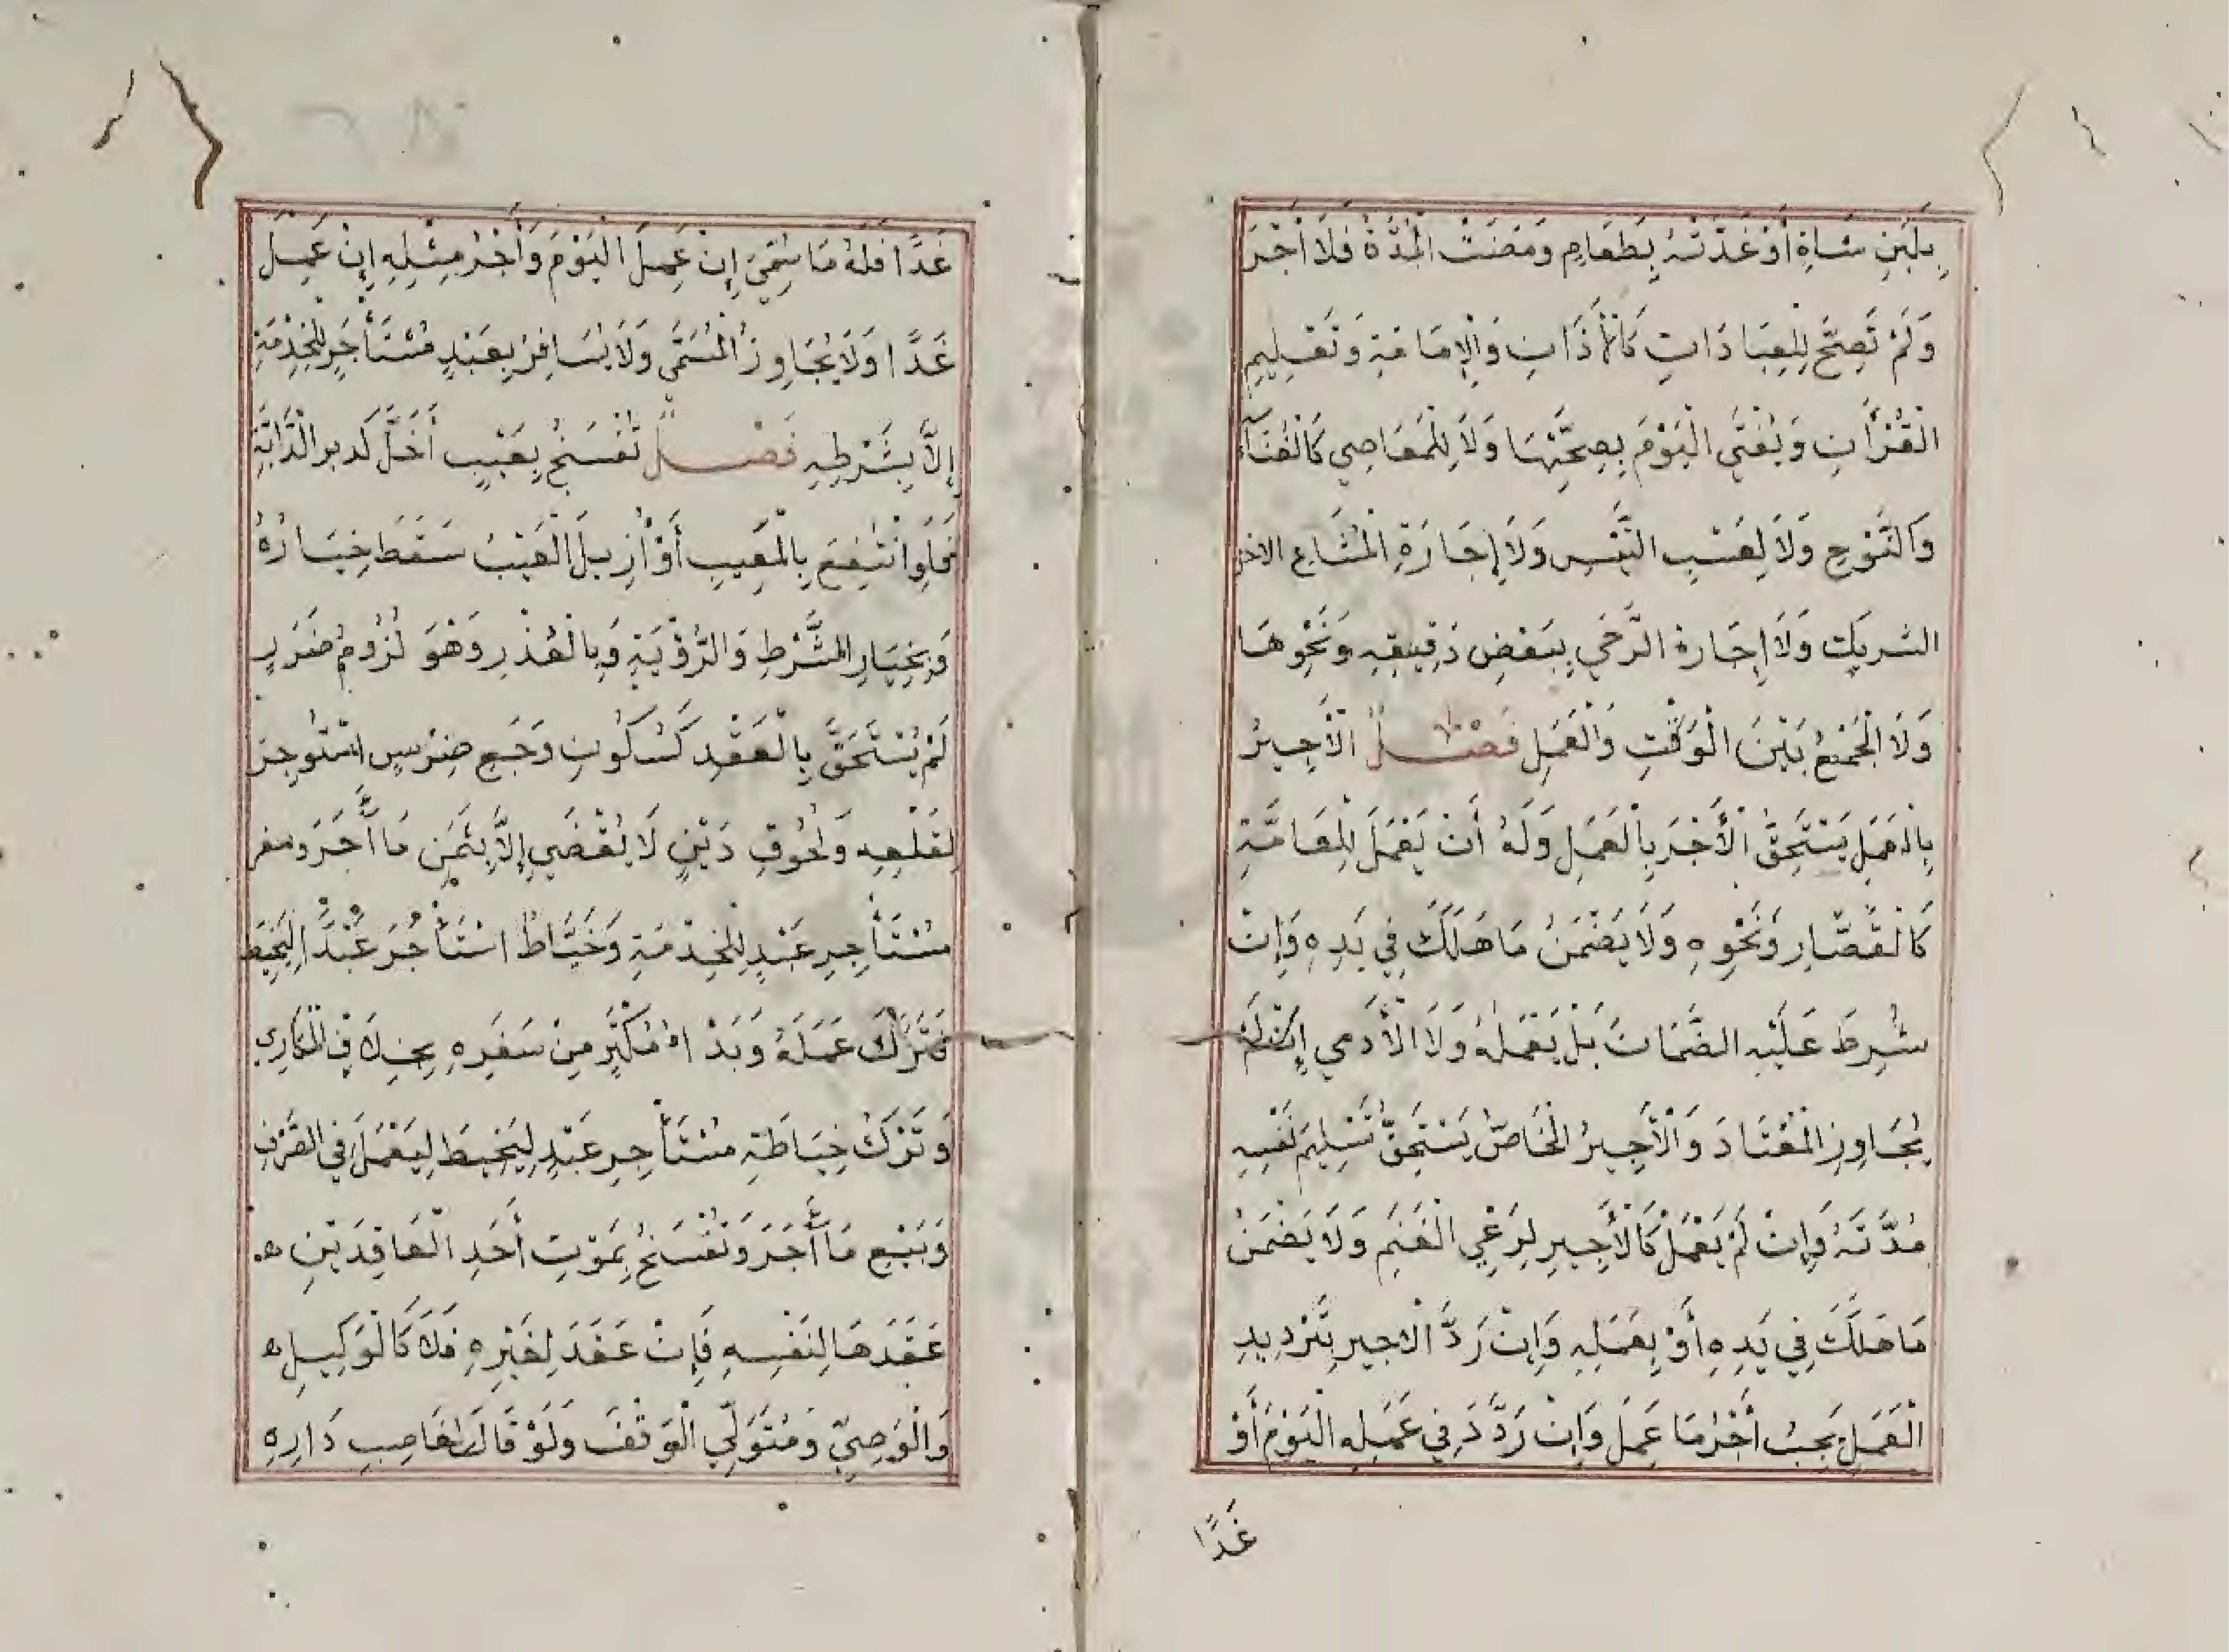 بِلَبَنِ شَاةٍ أَوْ غَذَّتْهُ بِطَعَامٍ وَمَضَتْ الْمُدَّةُ فَلَا أَجْرَ
وَلَمْ تَصِحَّ لِلْعِبَادَاتِ كَالْأَذَانِ وَالْإِمَامَةِ وَتَعْلِيمِ
الْقُرْأَنِ وَيُفْتَى الْيَوْمَ بِصِحَّتِهَا وَلَا لِلْمَعَاصِي كَالْغِنَاءِ
وَالنَّوْحِ وَلَا لِعَسْبِ التَّيْسِ وَلَا إِجَارَةِ الْمُشَاعِ الا من
الشريكِ وَلَا إِجَارة الرَّحَي بِبَعْضِ دَقِيقِهِ وَنَحْوِهَا
وَلَا الْجَمْعُ بَيْنَ الْوَقْتِ وَالْعَمَلِ فَصْلٌ الْأَجِيرُ
بِالْعَمَلِ يَسْتَحِقُّ الْأَجْرَ بِالْعَمَلِ وَلَهُ أَنْ يَعْمَلَ لِلْعَامَّةِ
كَالْقَصَّارِ وَنَحْوِهِ وَلَا يَضْمَنُ مَا هَلَكَ فِي يَدِهِ وَإِنْ
شُرِطَ عَلَيْهِ الضَّمَانَ بَلْ بِعَمَلِهِ وَلَا الْأَدَمِي إِنْ لَمْ
يُجَاوِزِ الْمُعْتَادَ وَالْأَجِيرُ الْخَاصُّ يَسْتَحِقُّ تَسْلِيمَ نَفْسِهِ
مُدَّتَهُ وَإِنْ لَمْ يَعْمَلْ كَالْأَجِيرِ لِرَعْيِ الْغَنَمِ وَلَا يَضْمَنُ
مَا هَلَكَ فِي يَدِهِ أَوْ بِعَمَلِهِ وَإِنْ رَدَّ الاجير بِتَرْدِيدِ
الْعَمَلِ يَجِبُ أَجْرُ مَا عَمِلَ وَإِنْ رَدَّدَ فِي عَمَلِهِ الْيَوْمَ أَوْ
غَدًا
غَدًا فَلَهُ مَا سُمِّيَ إِنْ عَمِلَ الْيَوْمَ وَأَجْرُ مِثْلِهِ إِنْ عَمِلَ
غَدًا وَلَا يُجَاوِزُ الْمُسَمَّي وَلَا يُسَافِرُ بِعَبْدٍ مُسْتَأْجَرٍ لِلْخِدْمَةِ
إِلَّا بِشَرْطِهِ فَصْلٌ تُفْسَخُ بِعَيْبٍ أَخَلَّ كدبر الدَّابَّةِ
فَلَوِ انْتَفَعَ بِالْمَعِيبِ أَوْ أُزِيلَ الْعَيْبُ سَقَطَ خِيَارُهُ
وَبِخِيَارِ الشَّرْطِ وَالرُّؤْيَةِ وَبِالْعُذْرِ وَهْوَ لُزُومُ ضَرَرٍ
لَمْ يُسْتَحَقَّ بِالْعَقْدِ كَسُكُونِ وَجَعِ ضِرْسٍ اسْتُوجِرَ
لِقَلْعِهِ وَلُحُوقِ دَيْنٍ لَا يُقْضَي إِلَّا بِثَمَنِ مَا أَجَرَ وسفر
مُسْتَأْجِرِ عَبْدٍ لِلْخِدْمَةِ وَخَيَّاطٌ اسْتَأْجَرَ عَبْدًا لِيَخِيطَ
فَتَرَكَ عَمَلَهُ وَبَدْاهُ مُكْتَرٍ مِنْ سَفَرِهِ بِخِلَافِ الْمُكَارِي
وَتَرْكُ خِيَاطَةِ مُسْتَأْجِرِ عَبْدٍ لِيَخِيطَ لِيَعْمَلَ فِي الصَّرْفِ
وَبَيْعِ مَا أَجَرَ وَتُفْسَخُ بِمَوْتِ أَحَدِ الْعَاقِدَيْنِ
عَقَدَهَا لِنَفْسِهِ فَإِنْ عَقَدَ لِغَيْرِهِ فَلَا كَالْوَكِيلِ
وَالْوَصِيِّ وَمُتَوَلِّي الْوَقْفِ وَلَوْ قَالَ لِغَاصِبِ دَارِهِ